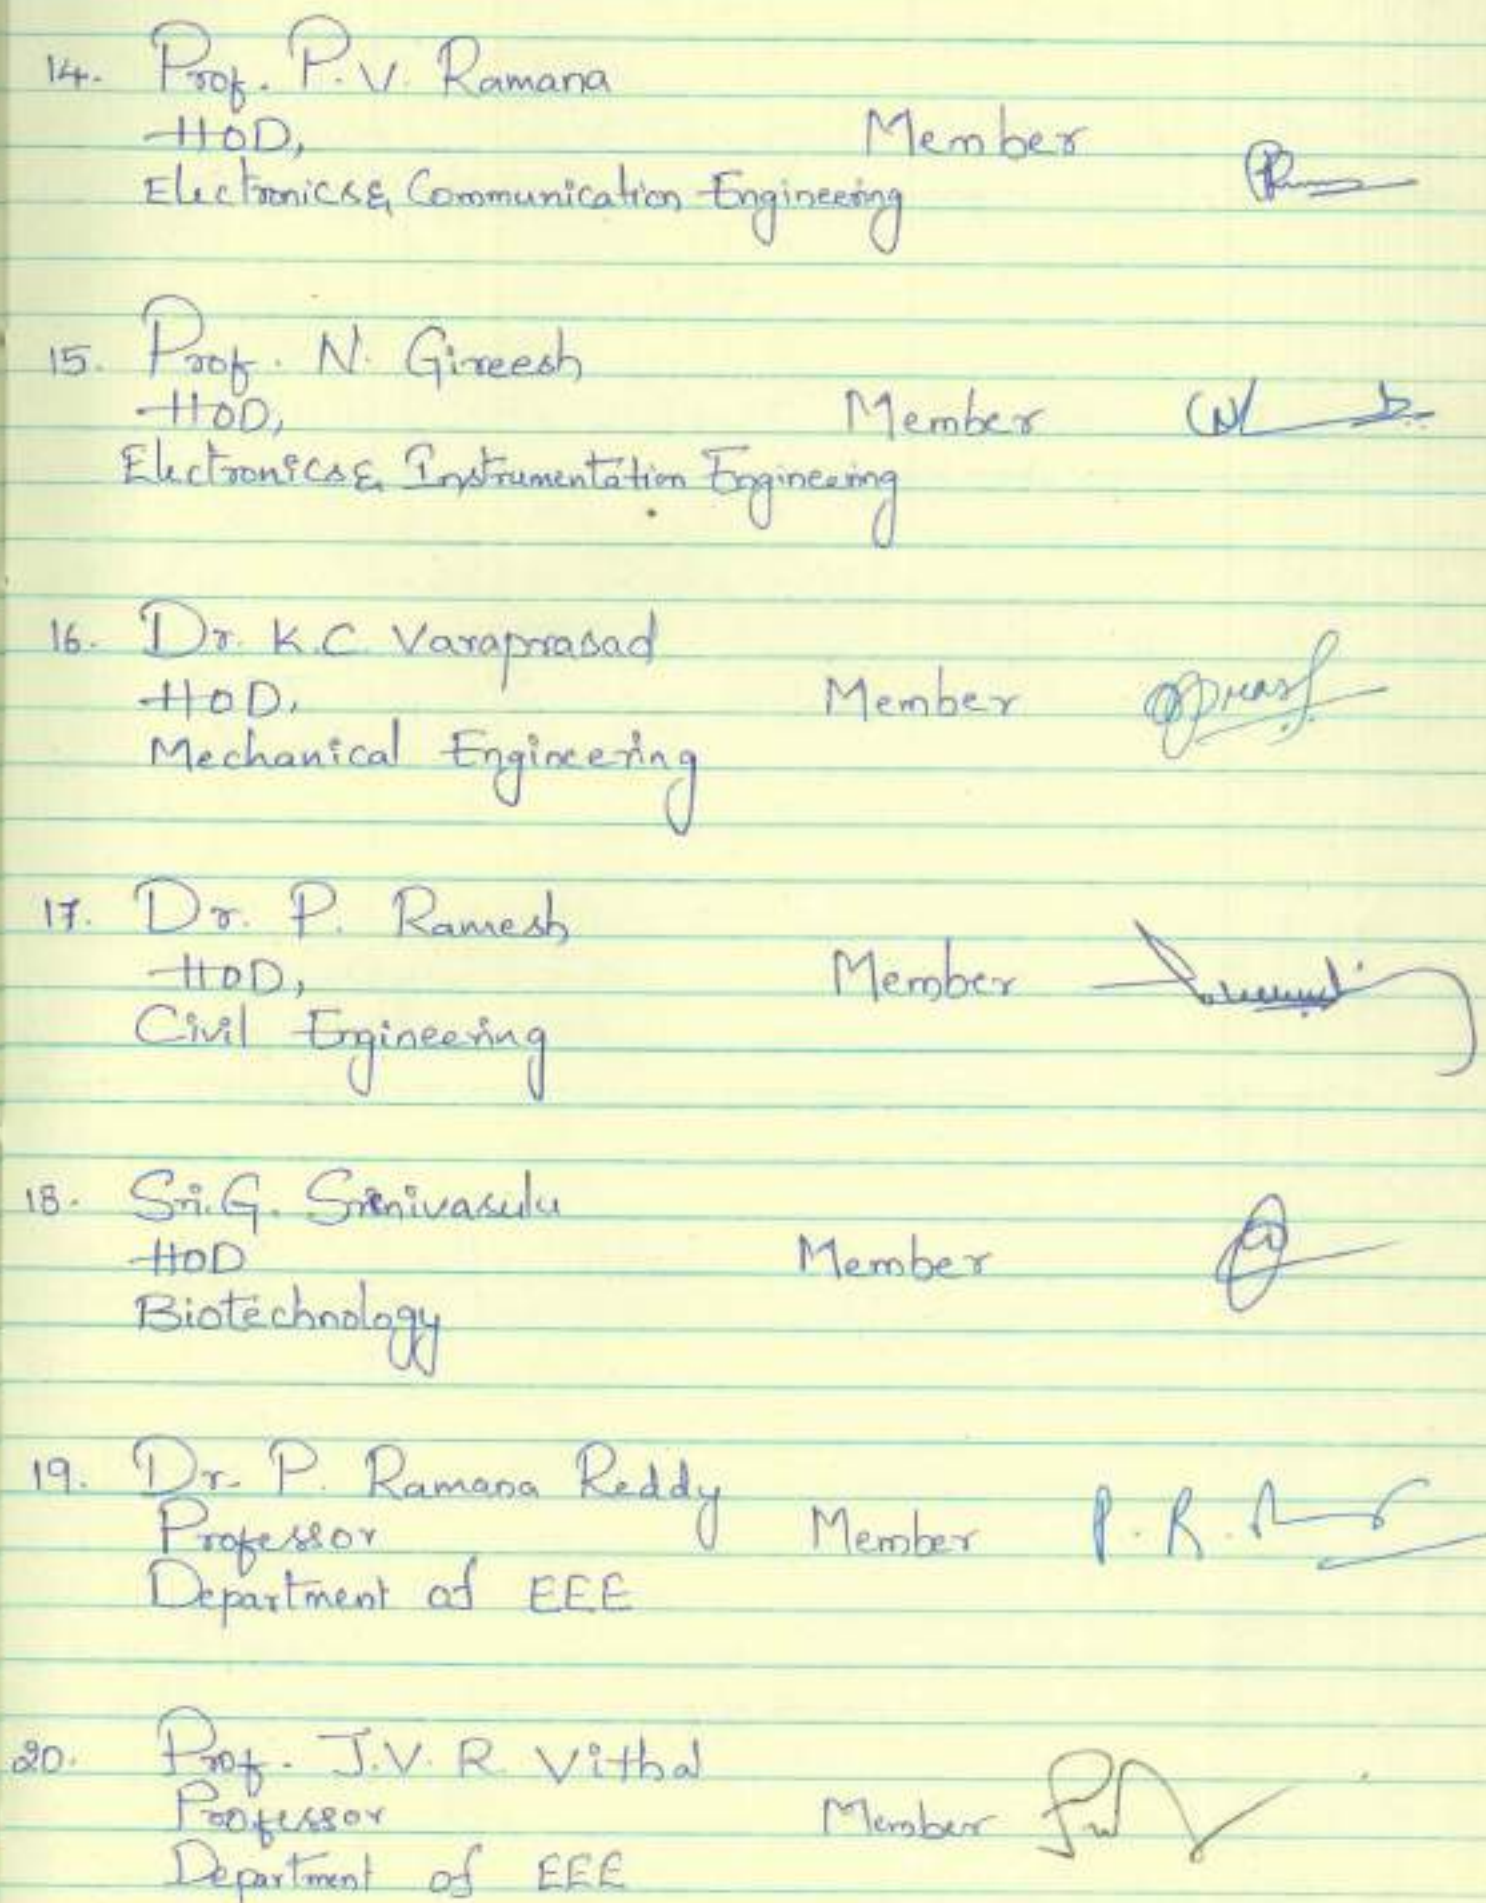 14. Prof. P.V. Ramana
HOD, Member
Electronics & Communication Engineering
15. Prof. N. Gireesh
HOD, Member
Electronics & Instrumentation Engineering
16. Dr. K.C. Varaprasad
HOD, Member
Mechanical Engineering
17. Dr. P. Ramesh
HOD, Member
Civil Engineering
18. Sri. G. Srinivasulu
HOD Member
Biotechnology
19. Dr. P. Ramana Reddy
Professor Member P. R.
Department of EEE
20. Prof. J.V.R. Vithal
Professor Member
Department of EEE